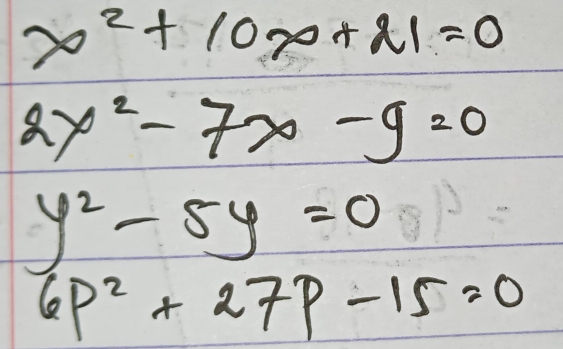 x² + 10x + 21 = 0
2x² - 7x - 9 = 0
y² - 5y = 0
6p² + 27p - 15 = 0